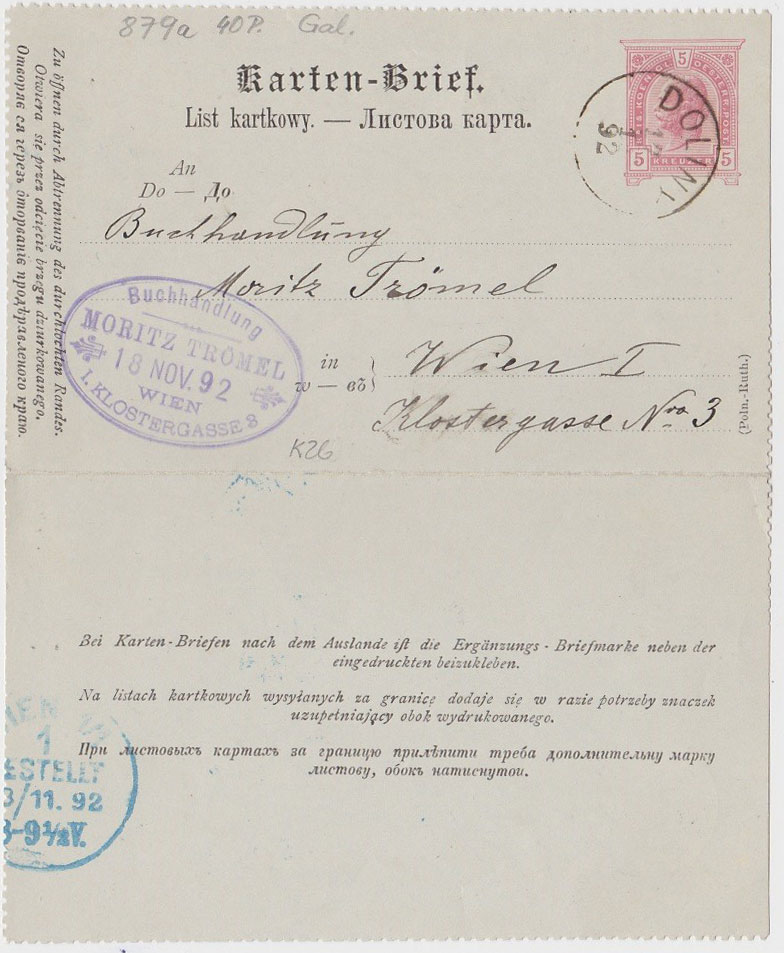 879a 40P. Gal.
Karten-Brief.
List kartkowy. — Листова карта.
5
5 KREUZER 5
DOLINA
92
An
Do — До
Buchhandlung
Moritz Trömel
in
w — въ
Wien I
Klostergasse Nro 3
(Poln.-Ruth.)
Zu öffnen durch Abtrennung des durchlochten Randes.
Otwiera się przez odcięcie brzegu dziurkowanego.
Отворяє ся герезъ ōторванıє продѣравленого краю.
Buchhandlung
MORITZ TRÖMEL
18 NOV. 92
WIEN
I. KLOSTERGASSE 3
K26
Bei Karten-Briefen nach dem Auslande ist die Ergänzungs-Briefmarke neben der
eingedruckten beizukleben.
Na listach kartkowych wysyłanych za granicę dodaje się w razie potrzeby znaczek
uzupełniający obok wydrukowanego.
При листовыхъ картахъ за границю прилѣпити треба дополнительну марку
листову, обокъ натиснутои.
1
ESTELLT
/11. 92
-9½V.